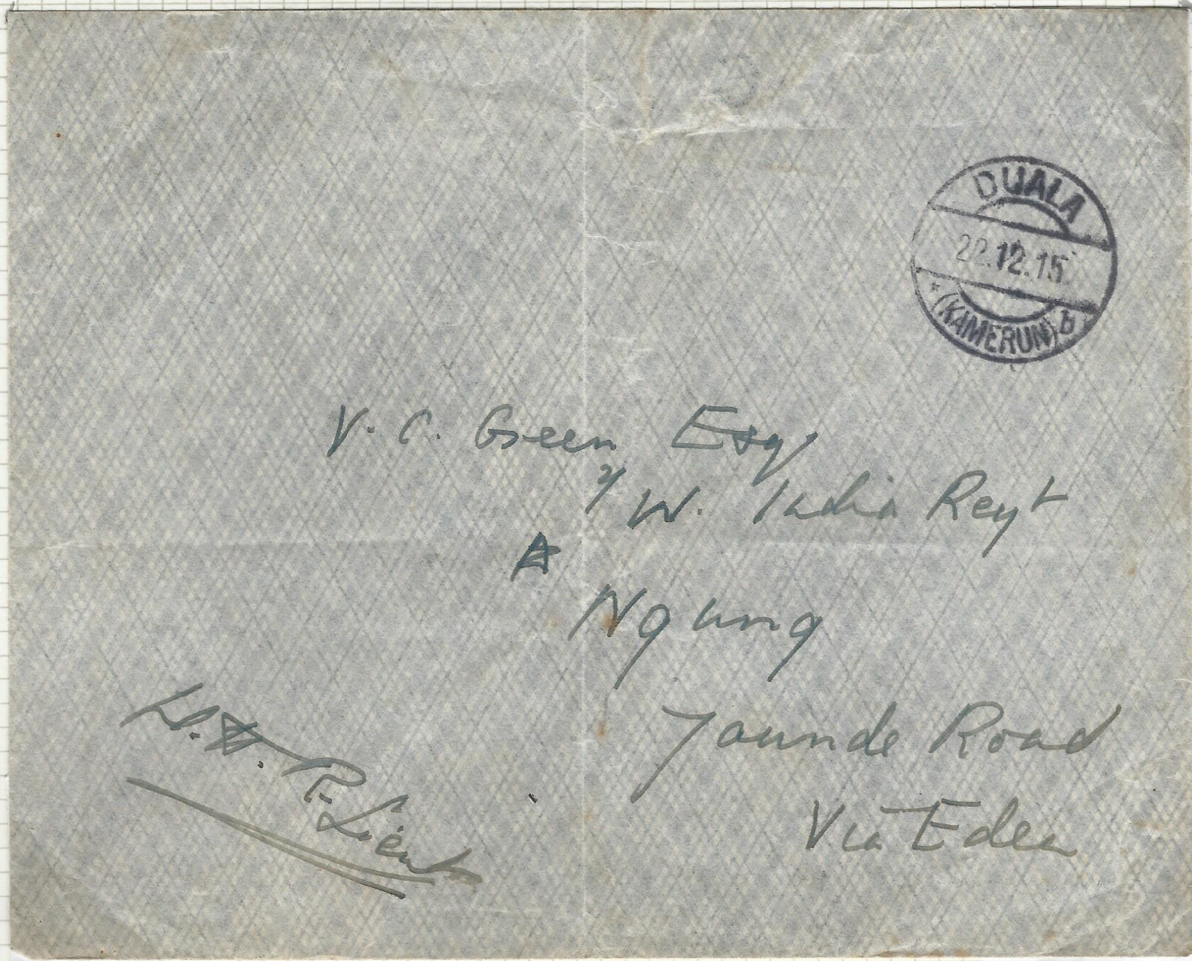 DUALA
22.12.15.
* (KAMERUN) b
V. C. Green, Esq
W. India Regt
Ngung
Jaunde Road
Via Edea
R. Lieut